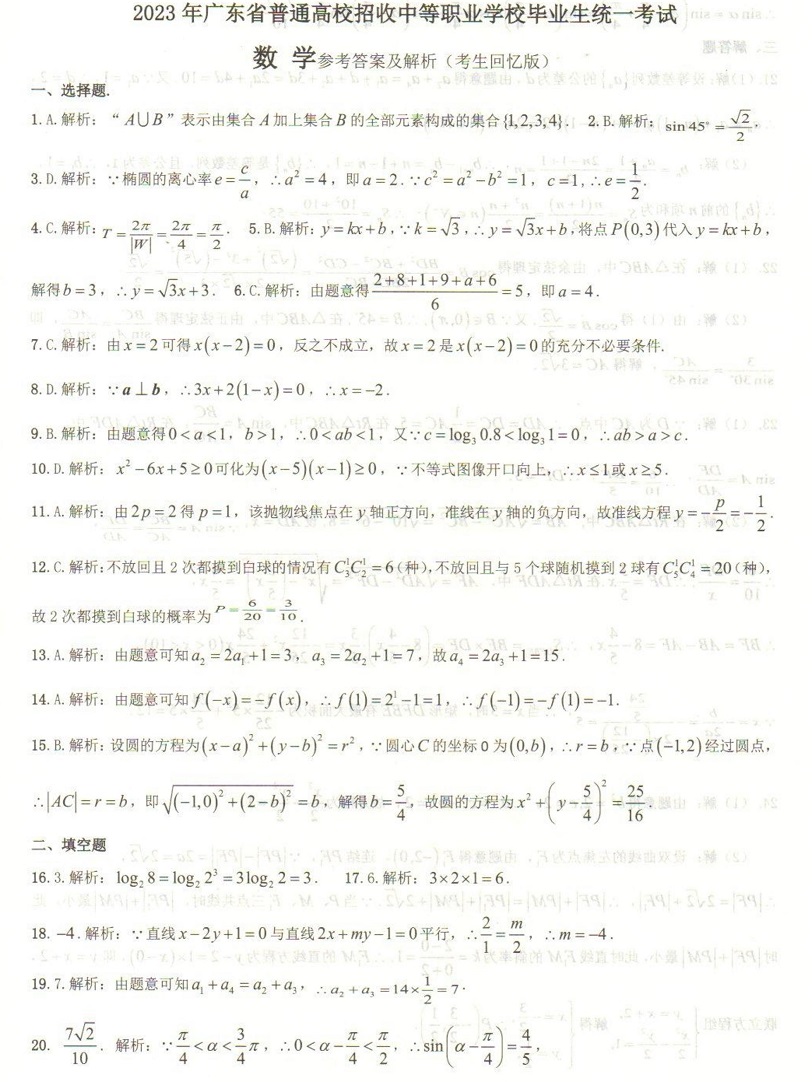 2023 年广东省普通高校招收中等职业学校毕业生统一考试
数 学参考答案及解析（考生回忆版）
一、选择题.
1.A.解析：“A∪B”表示由集合A加上集合B的全部元素构成的集合{1,2,3,4}. 2.B.解析：sin45°=√2/2,
3.D.解析：∵椭圆的离心率e=c/a，∴a²=4，即a=2.∵c²=a²−b²=1，c=1,∴e=1/2.
4.C.解析：T=2π/|W|=2π/4=π/2. 5.B.解析：y=kx+b,∵k=√3,∴y=√3x+b,将点P(0,3)代入y=kx+b，
解得b=3，∴y=√3x+3. 6.C.解析：由题意得(2+8+1+9+a+6)/6=5，即a=4.
7.C.解析：由x=2可得x(x−2)=0，反之不成立，故x=2是x(x−2)=0的充分不必要条件.
8.D.解析：∵a⊥b，∴3x+2(1−x)=0，∴x=−2.
9.B.解析：由题意得0<a<1，b>1，∴0<ab<1，又∵c=log₃0.8<log₃1=0，∴ab>a>c.
10.D.解析：x²−6x+5≥0可化为(x−5)(x−1)≥0，∵不等式图像开口向上，∴x≤1或x≥5.
11.A.解析：由2p=2得p=1，该抛物线焦点在y轴正方向，准线在y轴的负方向，故准线方程y=−p/2=−1/2.
12.C.解析：不放回且2次都摸到白球的情况有C₃¹C₂¹=6(种),不放回且与5个球随机摸到2球有C₅¹C₄¹=20(种)，
故2次都摸到白球的概率为P=6/20=3/10.
13.A.解析：由题意可知a₂=2a₁+1=3，a₃=2a₂+1=7，故a₄=2a₃+1=15.
14.A.解析：由题意可知f(−x)=−f(x)，∴f(1)=2¹−1=1，∴f(−1)=−f(1)=−1.
15.B.解析：设圆的方程为(x−a)²+(y−b)²=r²，∵圆心C的坐标0为(0,b)，∴r=b，∵点(−1,2)经过圆点，
∴|AC|=r=b，即√((−1,0)²+(2−b)²)=b，解得b=5/4，故圆的方程为x²+(y−5/4)²=25/16.
二、填空题
16.3.解析：log₂8=log₂2³=3log₂2=3. 17.6.解析：3×2×1=6.
18.−4.解析：∵直线x−2y+1=0与直线2x+my−1=0平行，∴2/1=m/2，∴m=−4.
19.7.解析：由题意可知a₁+a₄=a₂+a₃，∴a₂+a₃=14×1/2=7.
20. 7√2/10. 解析：∵π/4<α<3/4π，∴0<α−π/4<π/2，∴sin(α−π/4)=4/5，